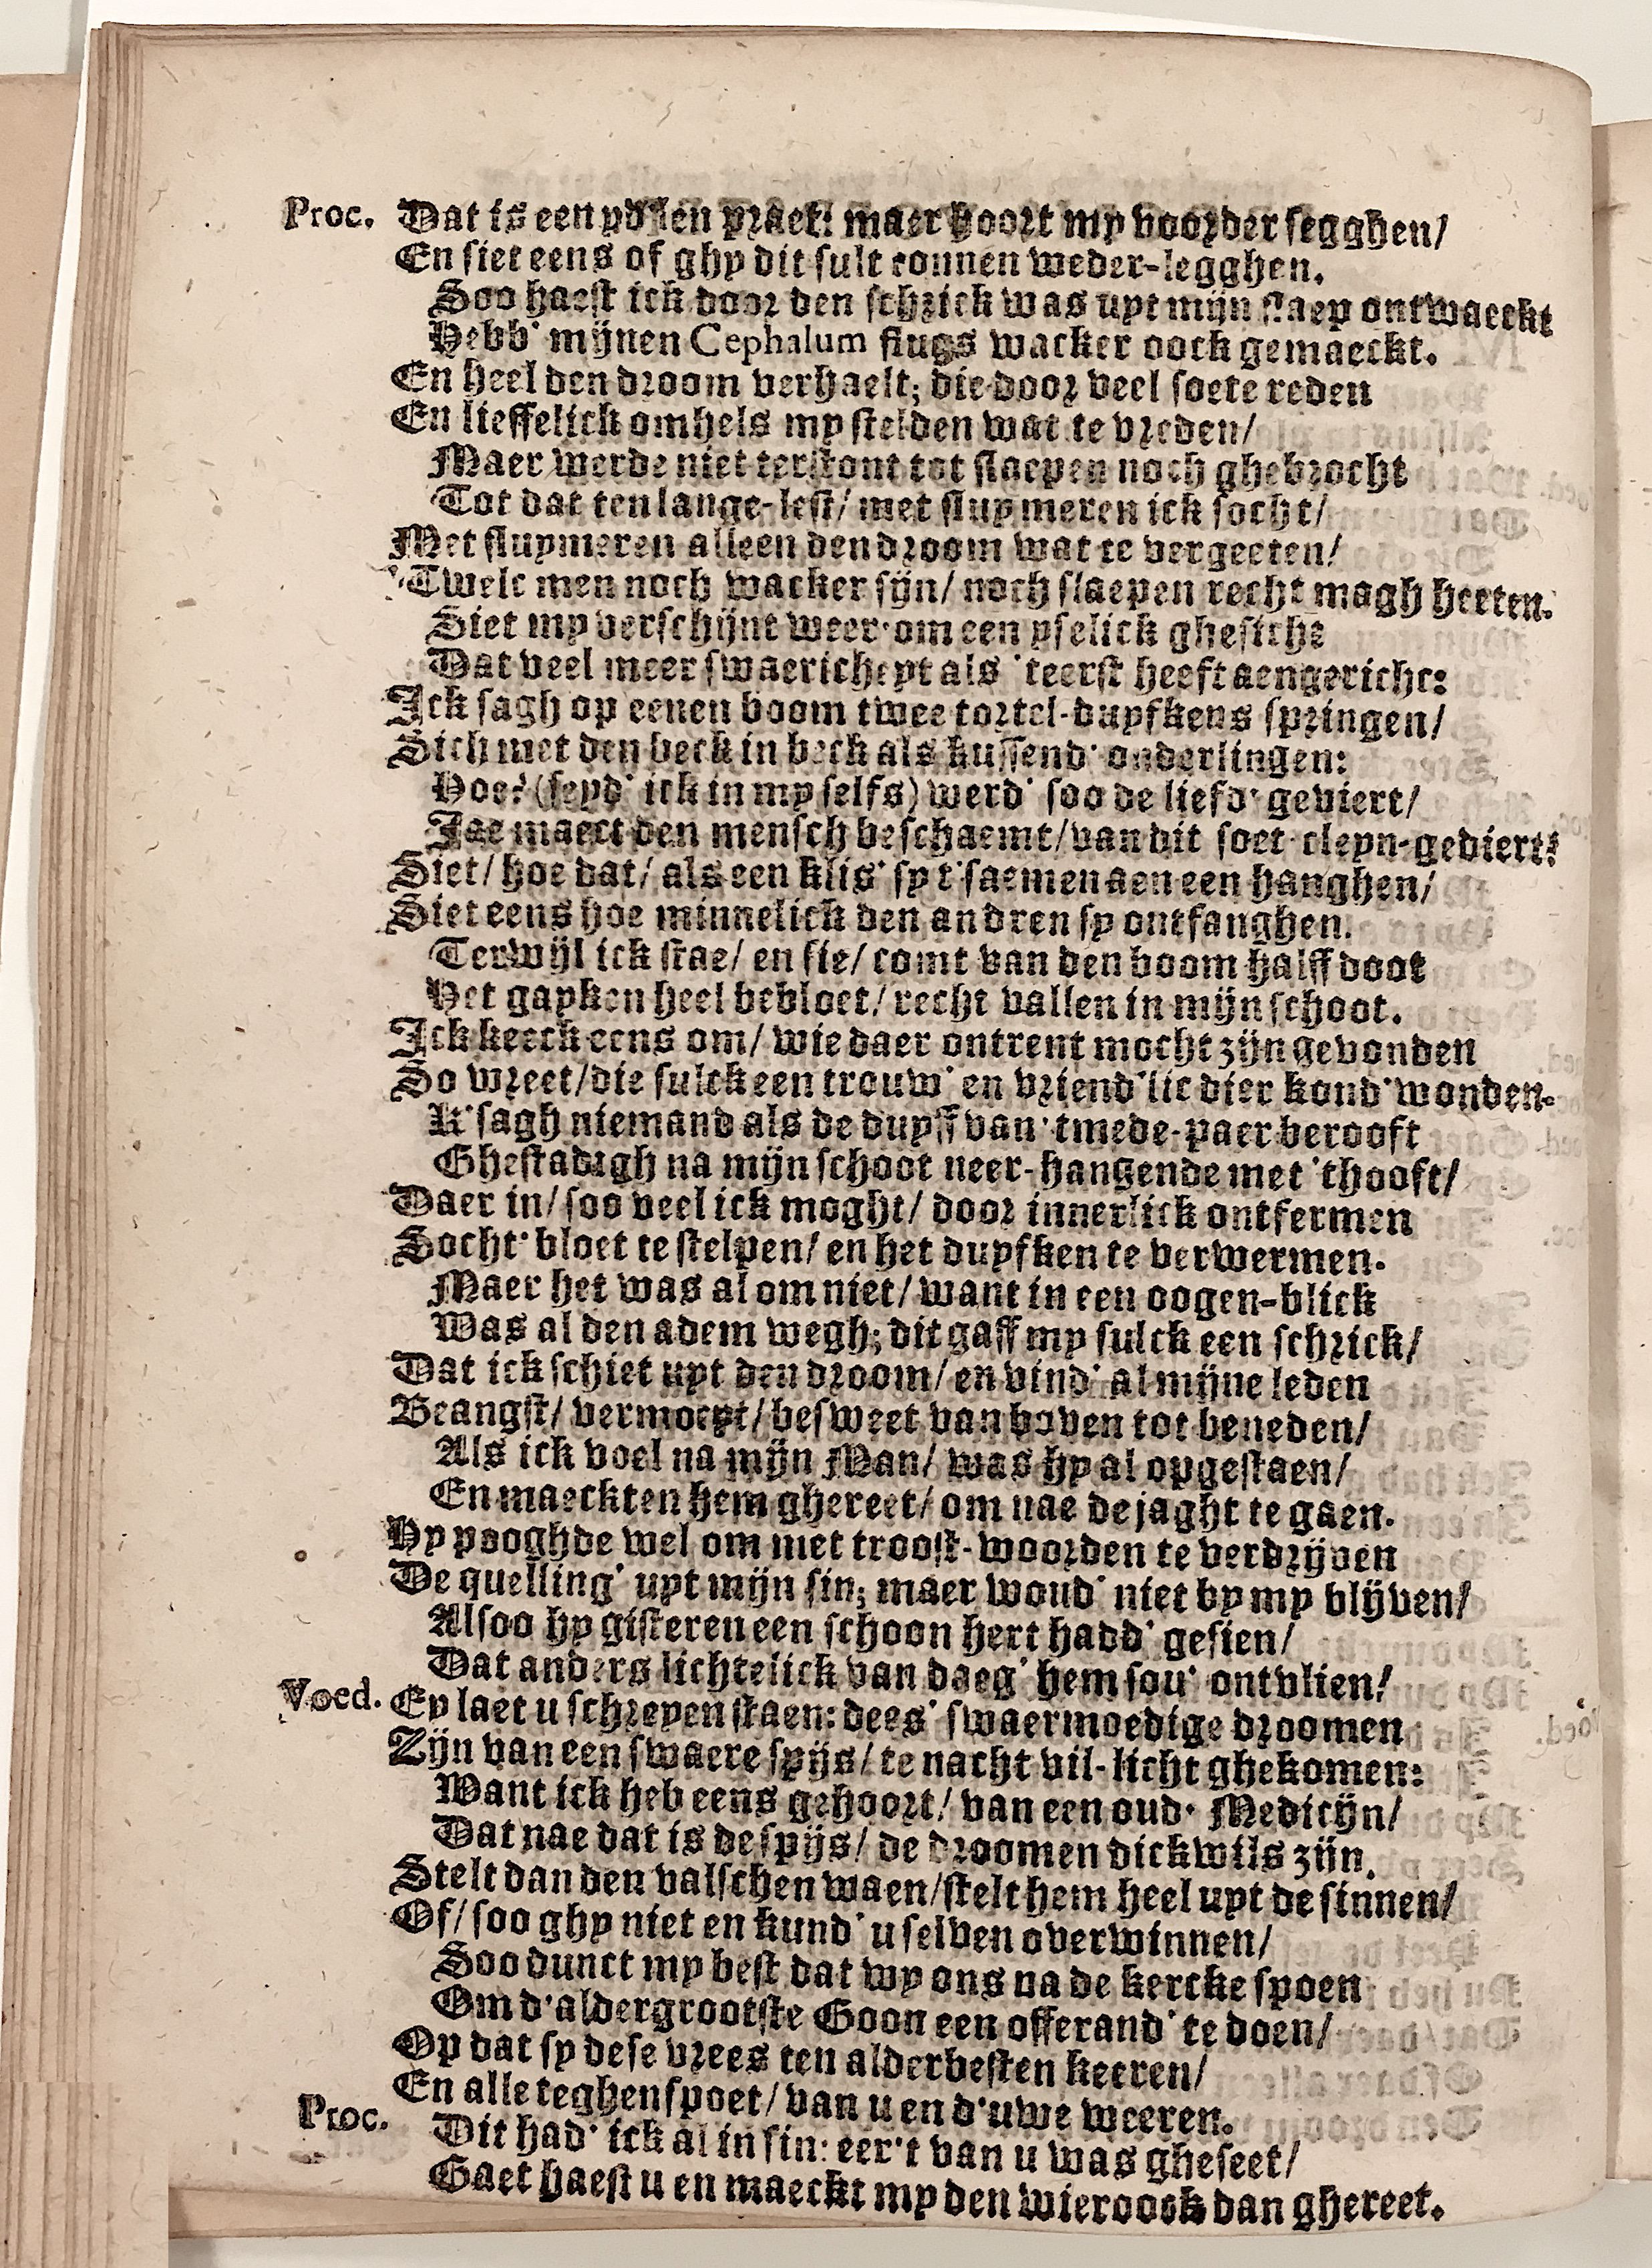 Proc. Dat is een ydelen praet: maer hoort my voorder segghen/
En siet eens of ghy dit sult connen weder-legghen.
Soo haest ick door den schrick was uyt mijn slaep ontwaeckt
Hebb' mijnen Cephalum flugs wacker oock gemaeckt.
En heel den droom verhaelt; die door veel soete reden
En lieffelick omhels my stelden wat te vreden/
Maer werde niet terstont tot slaepen noch ghebrocht
Tot dat ten lange-lest/ met sluymeren ick socht/
Met sluymeren alleen den droom wat te vergeeten/
'Twelc men noch wacker sijn/ noch slaepen recht magh heeten.
Siet my verschijnt weer-om een yselick ghesicht
Dat veel meer swaericheyt als 'teerst heeft aengericht:
Ick sagh op eenen boom twee tortel-duyfkens springen/
Sich met den beck in beck als kussend' onderlingen:
Hoe? (seyd' ick in my selfs) werd' soo de liefd' geviert/
Jae maect den mensch beschaemt/ van dit soet cleyn-gediert?
Siet/ hoe dat/ als een klis' sy t'saemen aen een hanghen/
Siet eens hoe minnelick den andren sy ontfanghen.
Terwijl ick stae/ en sie/ comt van den boom halff doot
Het gayken heel bebloet/ recht vallen in mijn schoot.
Ick keeck eens om/ wie daer ontrent mocht zijn gevonden
So wreet/ die sulck een trouw' en vriend'lic dier kond' wonden.
K'sagh niemand als de duyff van 'tmede-paer berooft
Ghestadigh na mijn schoot neer-hangende met 'thooft/
Daer in/ soo veel ick moght/ door innerlick ontfermen
Socht' bloet te stelpen/ en het duyfken te verwermen.
Maer het was al om niet/ want in een oogen-blick
Was al den adem wegh; dit gaff my sulck een schrick/
Dat ick schiet uyt den droom/ en vind' al mijne leden
Beangst/ vermoeyt/ besweet van boven tot beneden/
Als ick voel na mijn Man/ was hy al opgestaen/
En maeckten hem ghereet/ om nae de jaght te gaen.
Hy pooghde wel om met troost-woorden te verdrijven
De quelling' uyt mijn sin; maer woud' niet by my blijven/
Alsoo hy gisteren een schoon hert hadd' gesien/
Dat anders lichtelick van daeg' hem sou' ontvlien!
Voed. Ey laet u schreyen staen: dees' swaermoedige droomen
Zijn van een swaere spijs/ te nacht vil-licht ghekomen:
Want ick heb eens gehoort/ van een oud' Medicijn/
Dat nae dat is de spijs/ de droomen dickwils zijn.
Stelt dan den valschen waen/ stelt hem heel uyt de sinnen/
Of/ soo ghy niet en kund' u selven overwinnen/
Soo dunct my best dat wy ons na de kercke spoen
Om d'aldergrootste Goon een offerand' te doen/
Op dat sy dese vrees ten alderbesten keeren/
En alle teghenspoet/ van u en d'uwe weeren.
Proc. Dit had' ick al in sin: eer't van u was gheseet/
Gaet haest u en maeckt my den wieroock dan ghereet.